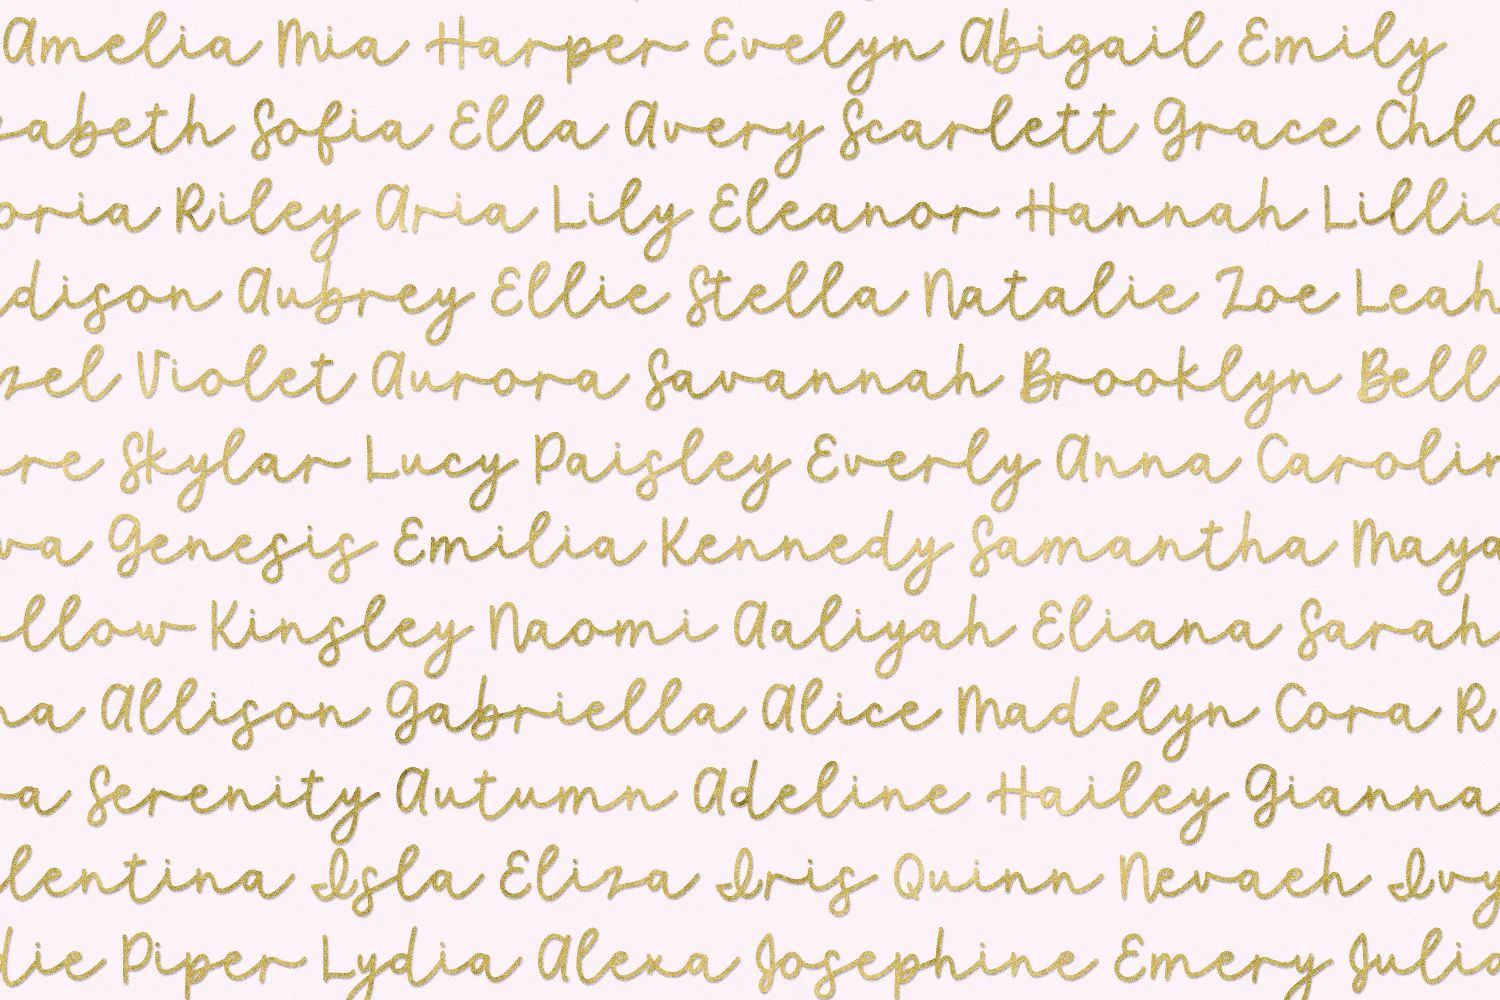 Amelia Mia Harper Evelyn Abigail Emily
zabeth Sofia Ella Avery Scarlett Grace Chlo
oria Riley Aria Lily Eleanor Hannah Lillia
dison Aubrey Ellie Stella Natalie Zoe Leah
zel Violet Aurora Savannah Brooklyn Bell
re Skylar Lucy Paisley Everly Anna Carolin
va Genesis Emilia Kennedy Samantha Maya
llow Kinsley Naomi Aaliyah Eliana Sarah
na Allison Gabriella Alice Madelyn Cora R
a Serenity Autumn Adeline Hailey Gianna
lentina Isla Eliza Iris Quinn Nevaeh Ivy
lie Piper Lydia Alexa Josephine Emery Julia